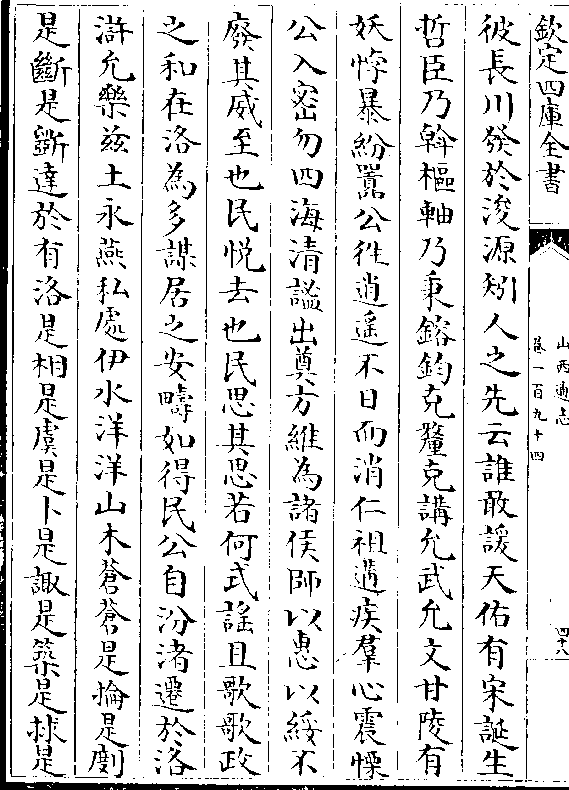 欽定四庫全書
山西通志
卷一百九十四
四十八
彼長川發於浚源矧人之先云誰敢諼天佑有宋誕生
哲臣乃斡樞軸乃秉鎔鈞克釐克講允武允文甘陵有
妖悖暴紛嚚公徃逍遥不日而消仁祖遘疾羣心震慄
公入密勿四海清謐出奠方維為諸侯師以惠以綏不
廢其威至也民悦去也民思其思若何式謡且歌歌政
之和在洛為多謀居之安疇如得民公自汾渚遷於洛
滸允樂兹土永燕私處伊水洋洋山木蒼蒼是掄是劇
是斷是斵達於有洛是相是虞是卜是諏是築是捄是